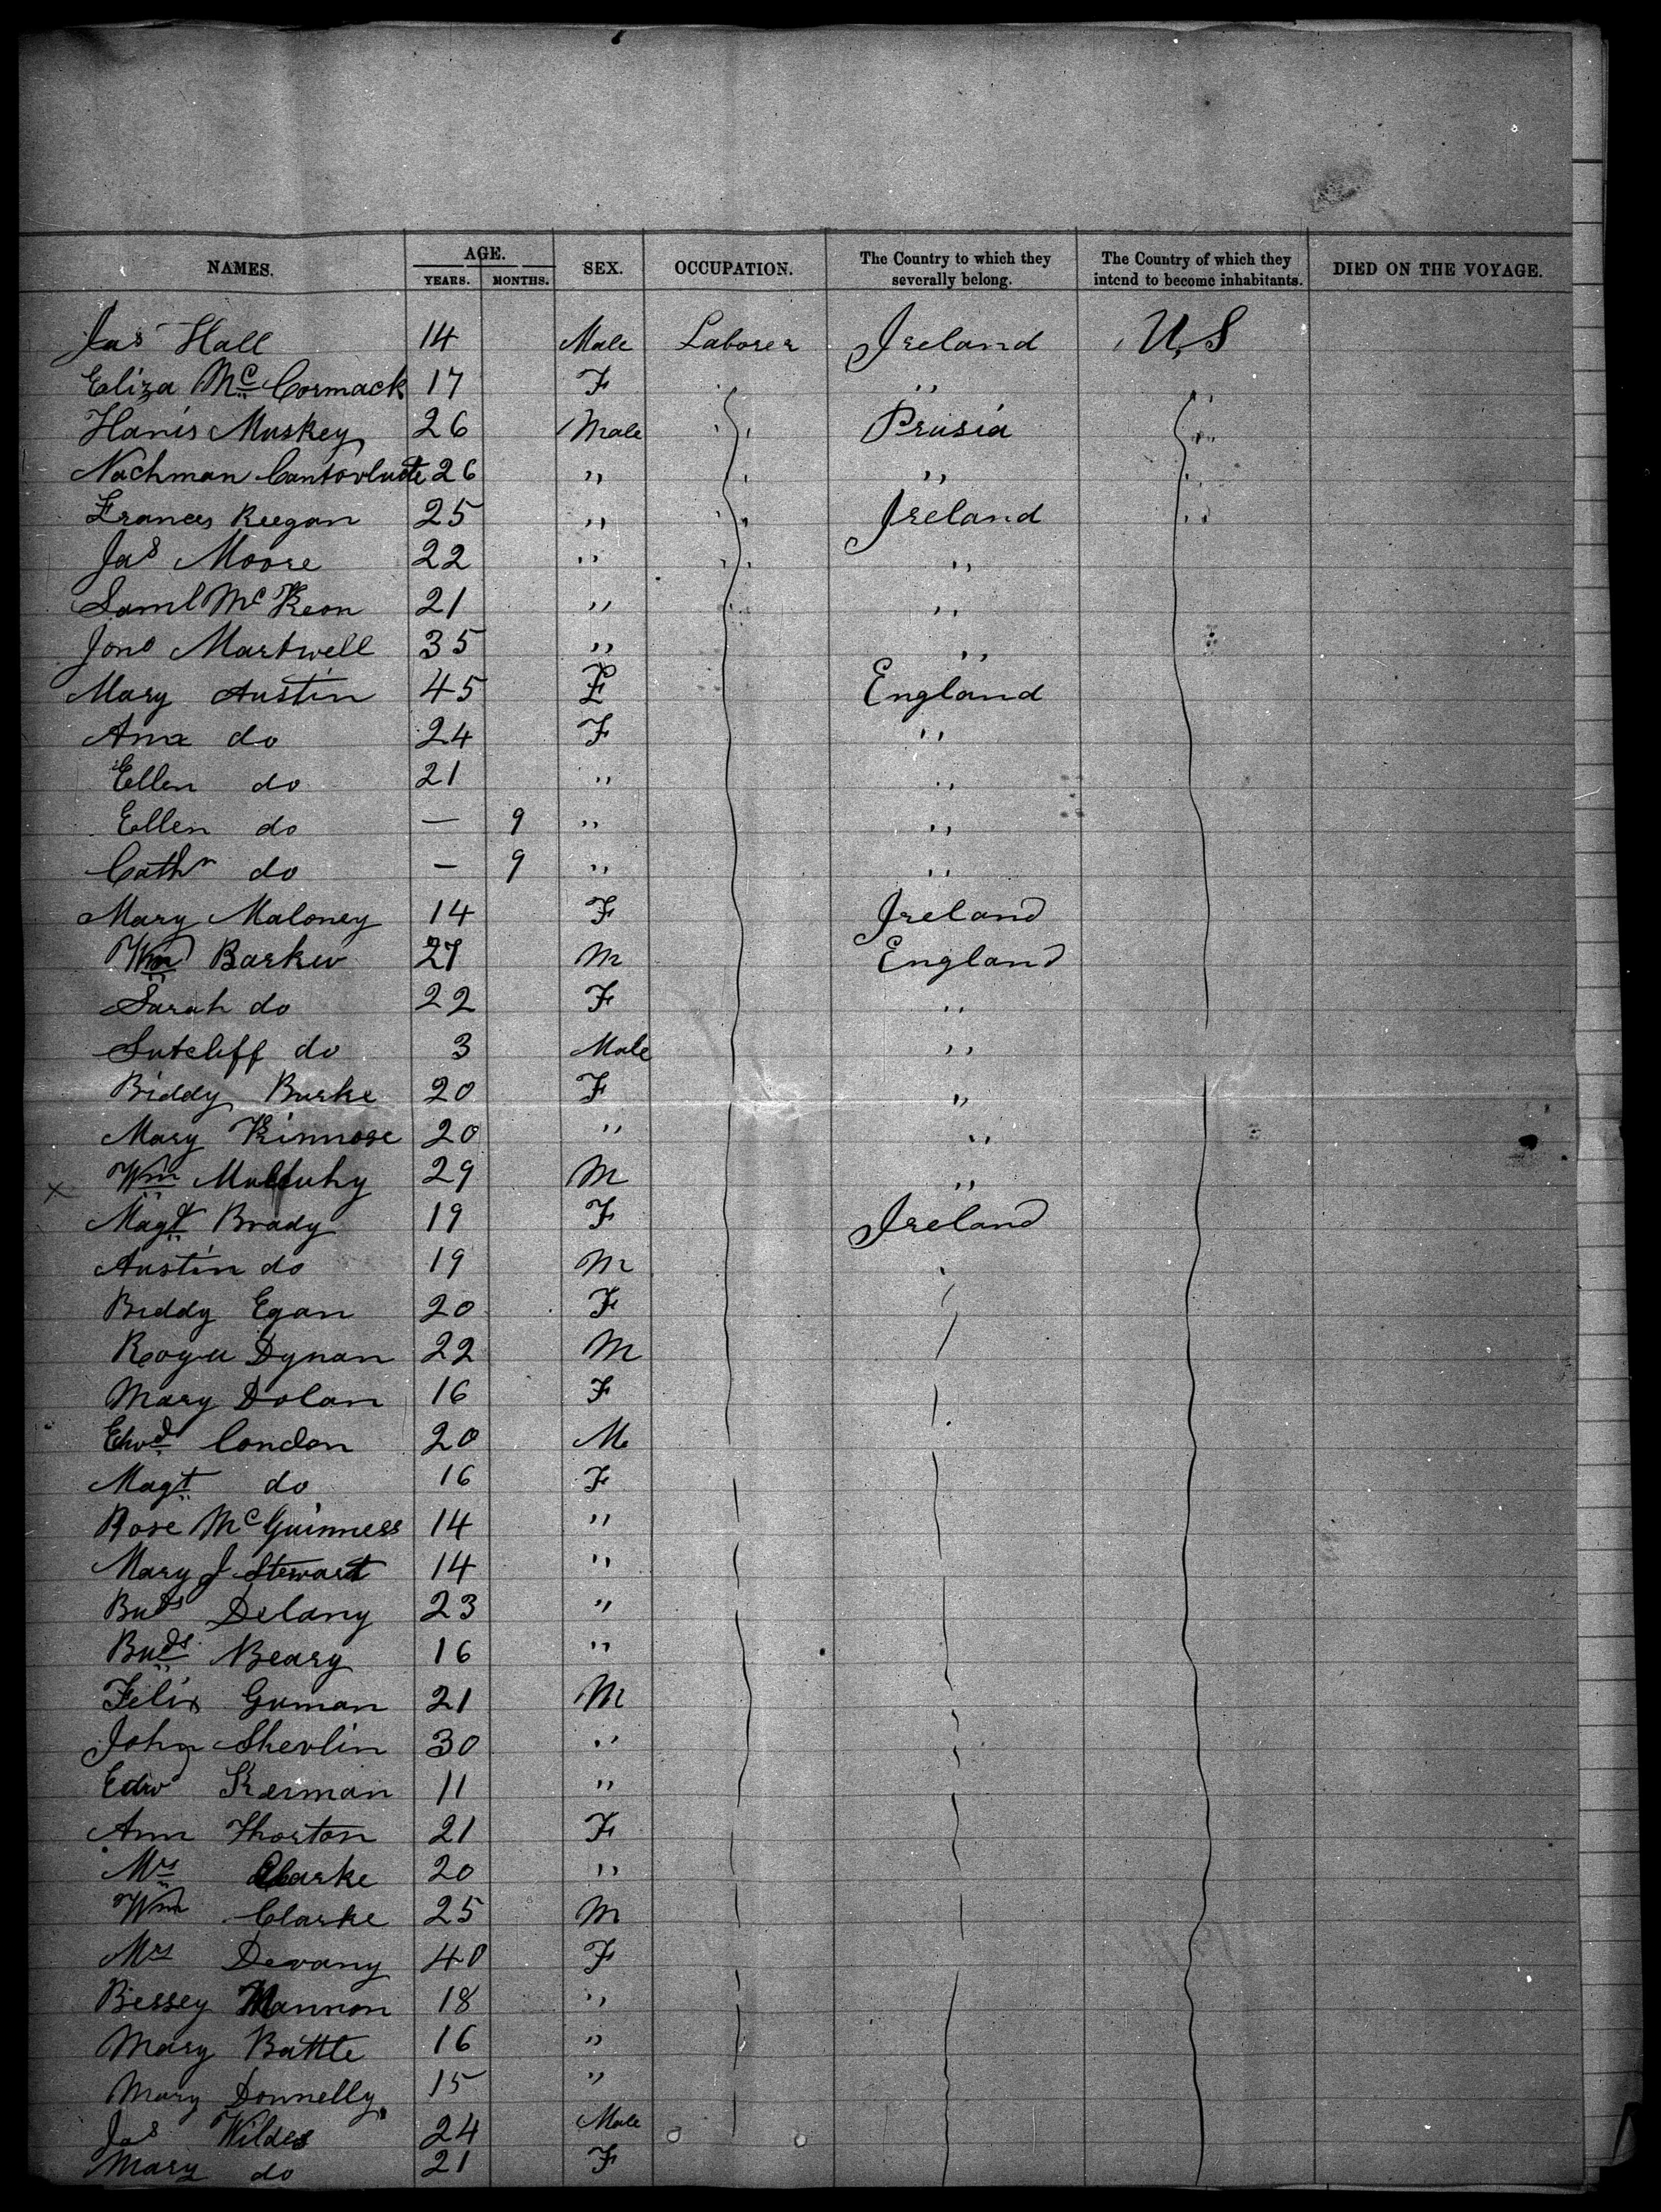 NAMES. AGE. SEX. OCCUPATION. The Country to which they severally belong. The Country of which they intend to become inhabitants. DIED ON THE VOYAGE.
YEARS. MONTHS.
Jas Hall 14 Male Laborer Ireland U,S
Eliza Mc Cormack 17 F ,,
Hanis Muskey 26 Male Prusia
Nachman 26 ,, ,,
Frances Keegan 25 ,, Ireland
Jas Moore 22 ,, ,,
Saml Mc Keon 21 ,, ,,
Jono Martwell 35 ,, ,,
Mary Austin 45 F England
Ann do 24 F ,,
Ellen do 21 ,, ,,
Ellen do — 9 ,, ,,
Cathn do — 9 ,, ,,
Mary Maloney 14 F Ireland
Wm Barker 27 M England
Sarah do 22 F ,,
Sutcliff do 3 Male ,,
Biddy Burke 20 F ,,
Mary Kinnose 20 ,, ,,
x Wm 29 M ,,
Magt Brady 19 F Ireland
Austin do 19 M
Biddy Egan 20 F
Roger Dynan 22 M
Mary Dolan 16 F
Edwd Condon 20 M
Magt do 16 F
Rose Mc Guinness 14 ,,
Mary J Stewart 14 ,,
Delany 23 ,,
Neary 16 ,,
Felix 21 M
John Shevlin 30 ,,
Edwd Kerman 11 ,,
Ann Thorton 21 F
Mrs Clarke 20 ,,
Wm Clarke 25 M
Mrs Devany 40 F
Bessey Mannon 18 ,,
Mary Battle 16 ,,
Mary Donnelly 15 ,,
Jas Wildes 24 Male
Mary do 21 F